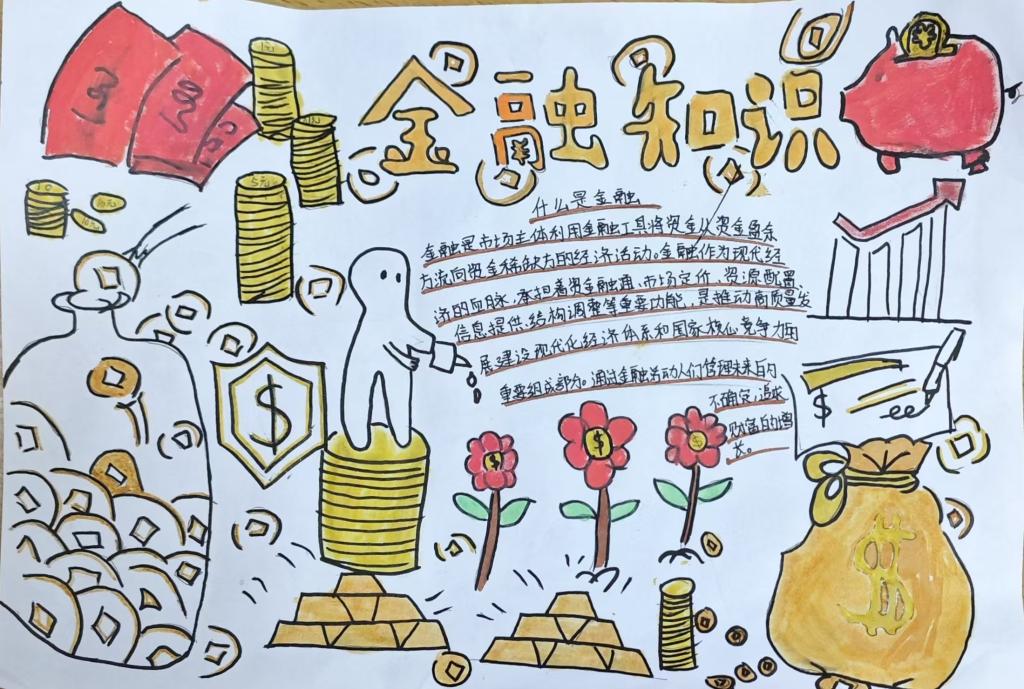 金融知识
什么是金融
金融是市场主体利用金融工具将资金从资金盈余
方流向资金稀缺方的经济活动。金融作为现代经
济的血脉,承担着资金融通、市场定价、资源配置、
信息提供、结构调整等重要功能,是推动高质量发
展建设现代化经济体系和国家核心竞争力的
重要组成部分。通过金融活动人们管理未来的
不确定,追求
财富的增
长。
5元
$
$
$
$
$
$